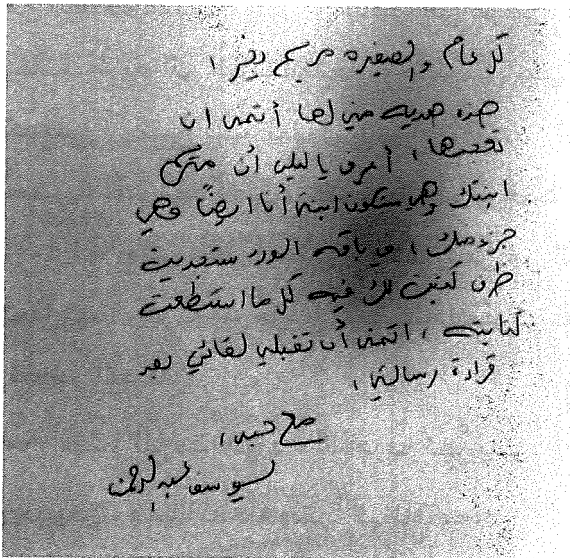 كل عام والصغيره مريم بخير ،
هذه هديه مني لها أتمنى ان
تعجبها ، أعرف ياليلى أن مريم
ابنتك وهي ستكون ابنتي أنا ايضاً وهي
جزء منك ، في باقه الورد ستجدين
ظرف كتبت لك فيه كل ما استطعت
كتابته ، اتمنى أن تقبلي لقائي بعد
قراءة رسالتي ،
مع حبي ،
يوسف عبدالرحمن